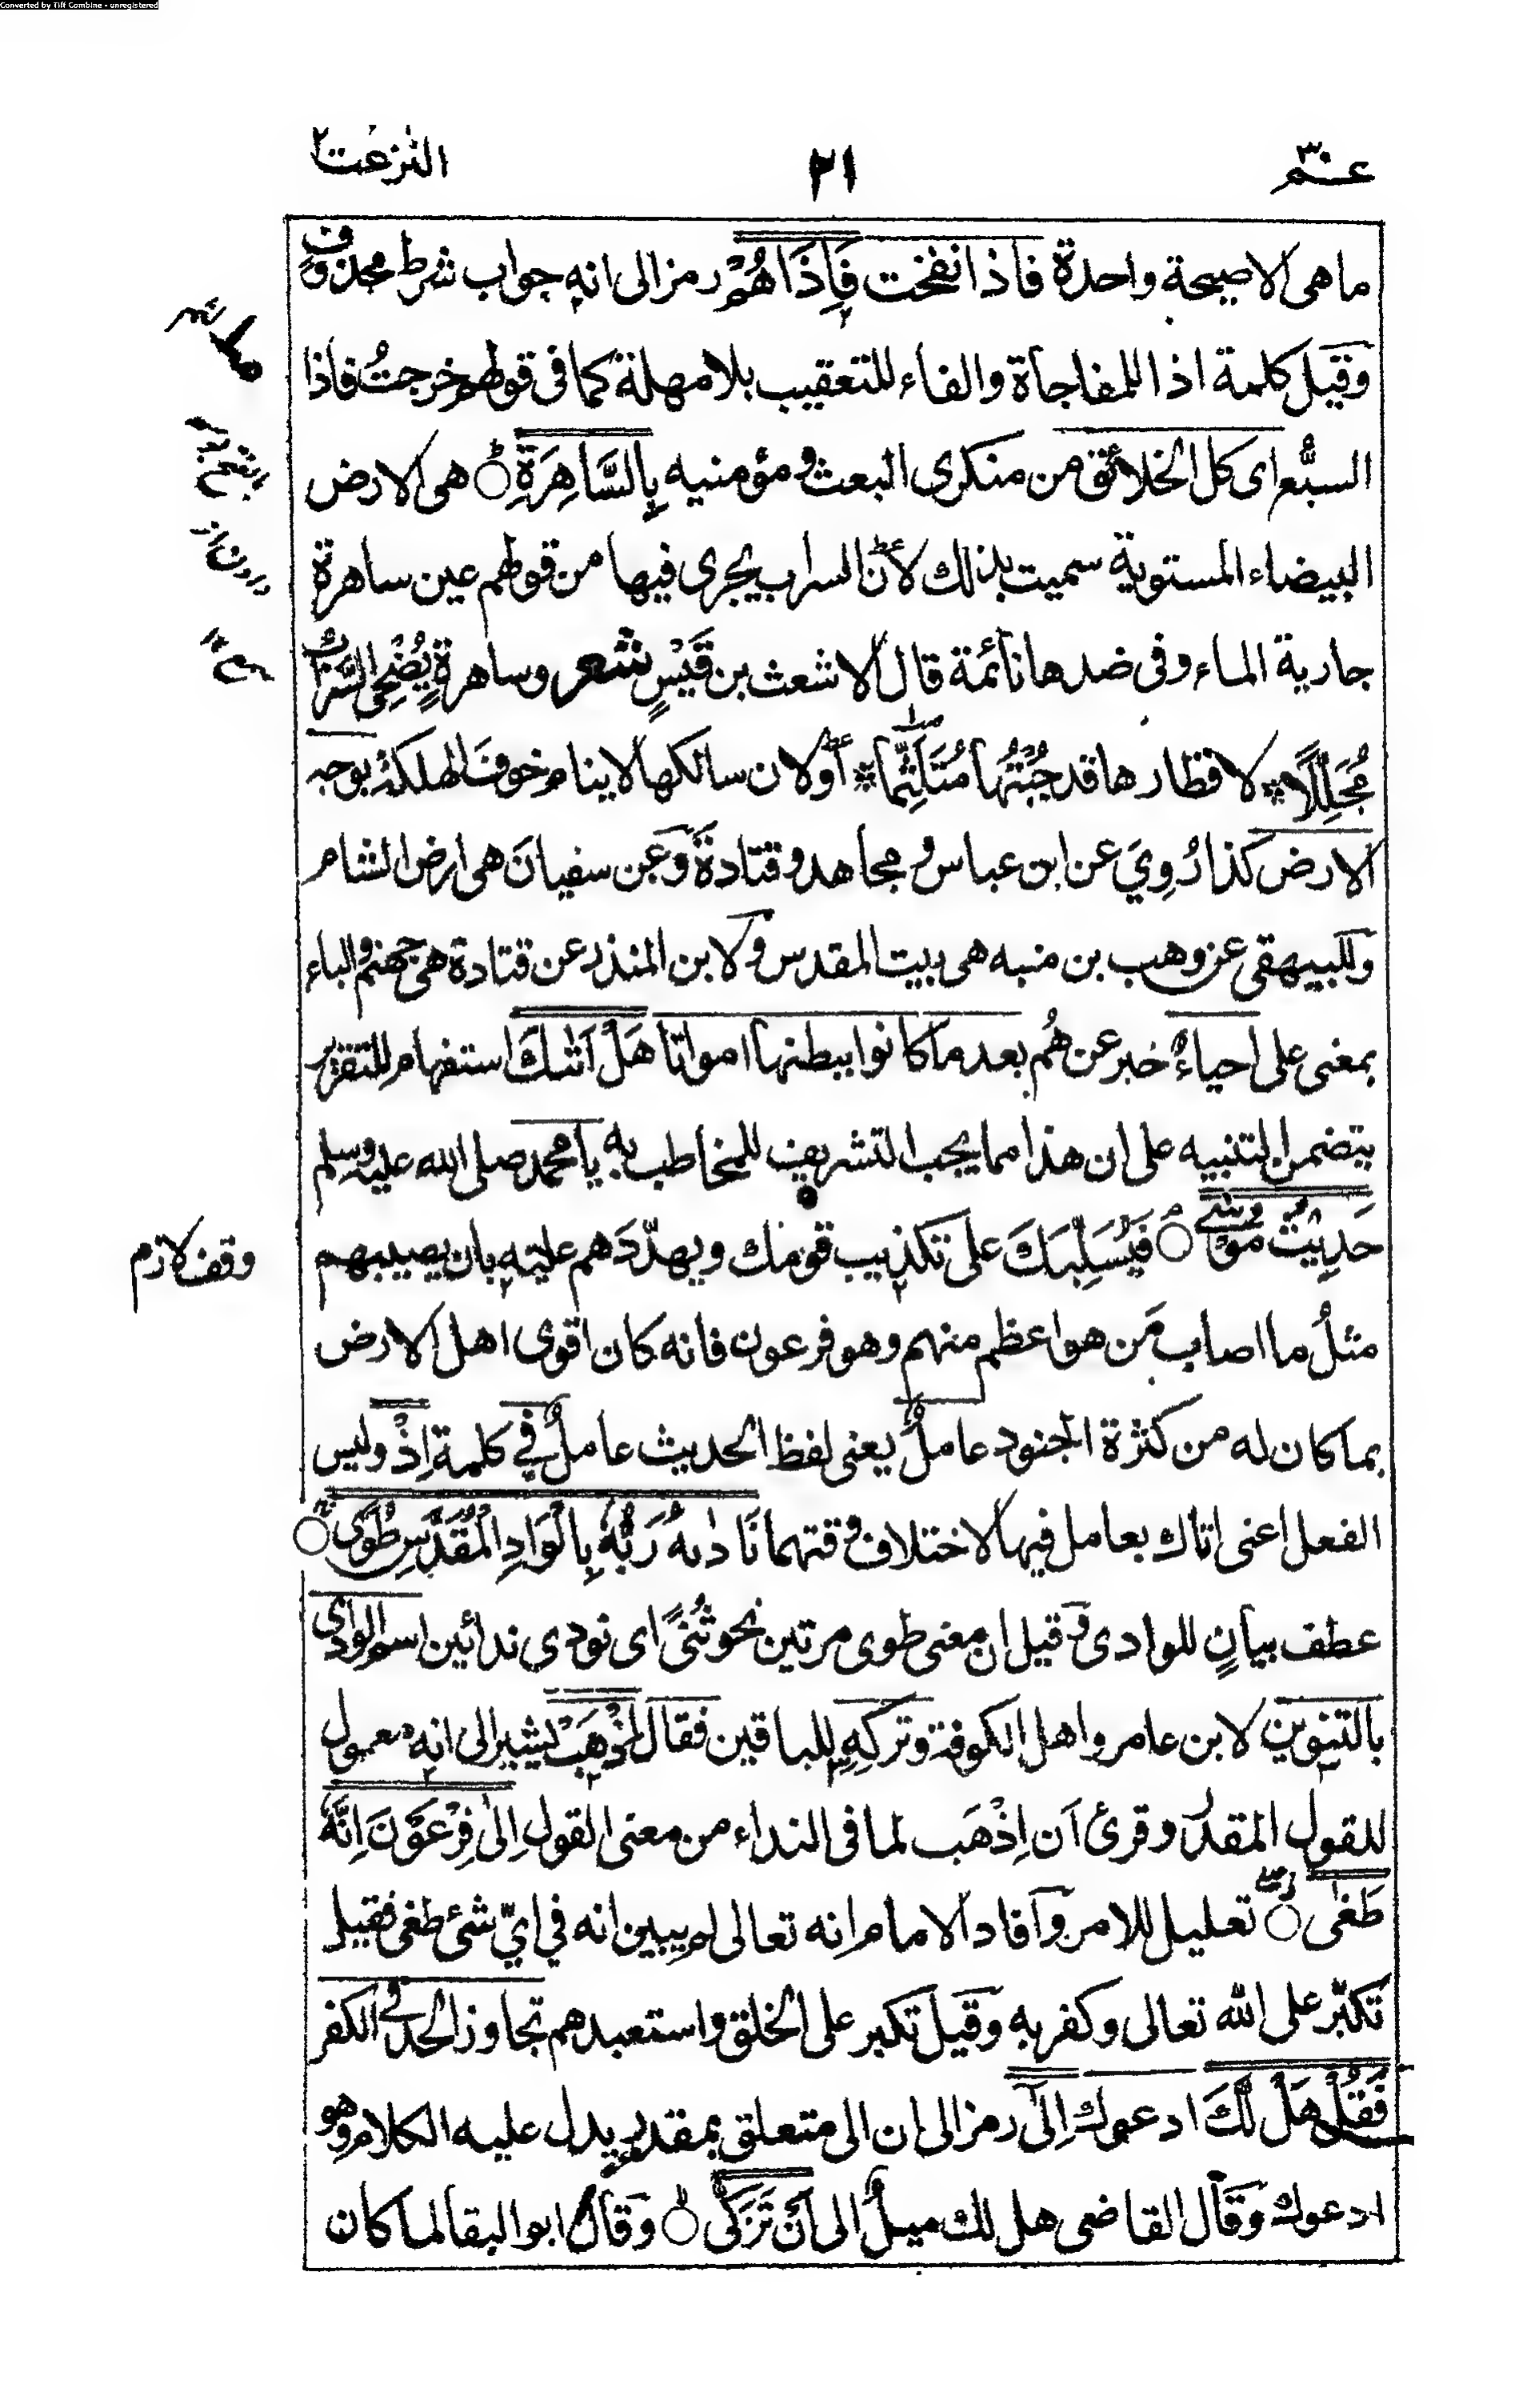 Converted by Tiff Combine - unregistered
عـم ٣٠
٢١
النزعت ٢
ما هى الا صيحة واحدة فاذا نفخت فَاِذَا هُمْ رمز الى انه جواب شرط محذوف
وقيل كلمة اذا للمفاجأة والفاء للتعقيب بلا مهلة كما فى قولهم خرجتُ فاذا
السبُع اى كل الخلائق من منكرى البعث ومؤمنيه بِالسَّاهِرَةِ هى الارض
البيضاء المستوية سميت بذلك لان السراب يجرى فيها من قولهم عين ساهرة
جارية الماء وفى ضدها نائمة قال الاشعث بن قَيْسٍ شعر وساهرةٍ يُضْحِى السَّرَابُ
مُجَلِّلًا لاقطارها قد جُبْتُهَا مُتَلَثِّمًا اَوْ لان سالكها لا ينام خوفَ الهلكة بوجه
الارض كذا رُوِيَ عن ابن عباس ومجاهد وقتادة وعن سفيانَ هى ارض الشام
وللبيهقى عن وهب بن منبه هى بيت المقدس ولابن المنذر عن قتادة هى جهنم والباء
بمعنى على احياءٌ خبر عن هُم بعد ما كانوا ببطنها امواتا هَلْ اَتٰىكَ استفهام للتقرير
يتضمن التنبيه على ان هذا مما يجب التشريف للمخاطب به يا محمد صلى الله عليه وسلم
حَدِيْثُ مُوْسٰى فَيُسَلِّيَكَ على تكذيب قومك ويهدّدَهم عليه بان يصيبهم
مثلُ ما اصاب مَن هو اعظم منهم وهو فرعون فانه كان اقوى اهل الارض
بما كان له من كثرة الجنود عاملٌ يعنى لفظ الحديث عاملٌ فى كلمة اِذْ وليس
الفعل اعنى اتاك بعامل فيها لاختلاف وقتهما نَادٰىهُ رَبُّهٗ بِالْوَادِ الْمُقَدَّسِ طُوًى
عطف بيانٍ للوادى وقيل ان معنى طوى مرتين نحو ثُنًى اى نودى ندائين اسم الوادى
بالتنوين لابن عامر واهل الكوفة وتركِه للباقين فقال اذْهَبْ يشير الى انه معمول
للقول المقدر وقرئ اَن اِذْهَب لما فى النداء من معنى القول اِلٰى فِرْعَوْنَ اِنَّهٗ
طَغٰى تعليل للامر وآفاد الامام انه تعالى لم يبين انه في ايّ شئ طغى فقيل
تكبّر على الله تعالى وكفر به وقيل تكبر على الخلق واستعبدهم تجاوز الحد فى الكفر
فَقُلْ هَلْ لَّكَ ادعوك اِلٰى رمز الى ان الى متعلق بمقدر يدل عليه الكلام وهو
ادعوك وقال القاضى هل لك ميلٌ الى اَنْ تَزَكّٰى وقال ابو البقا لما كان
وقف لازم